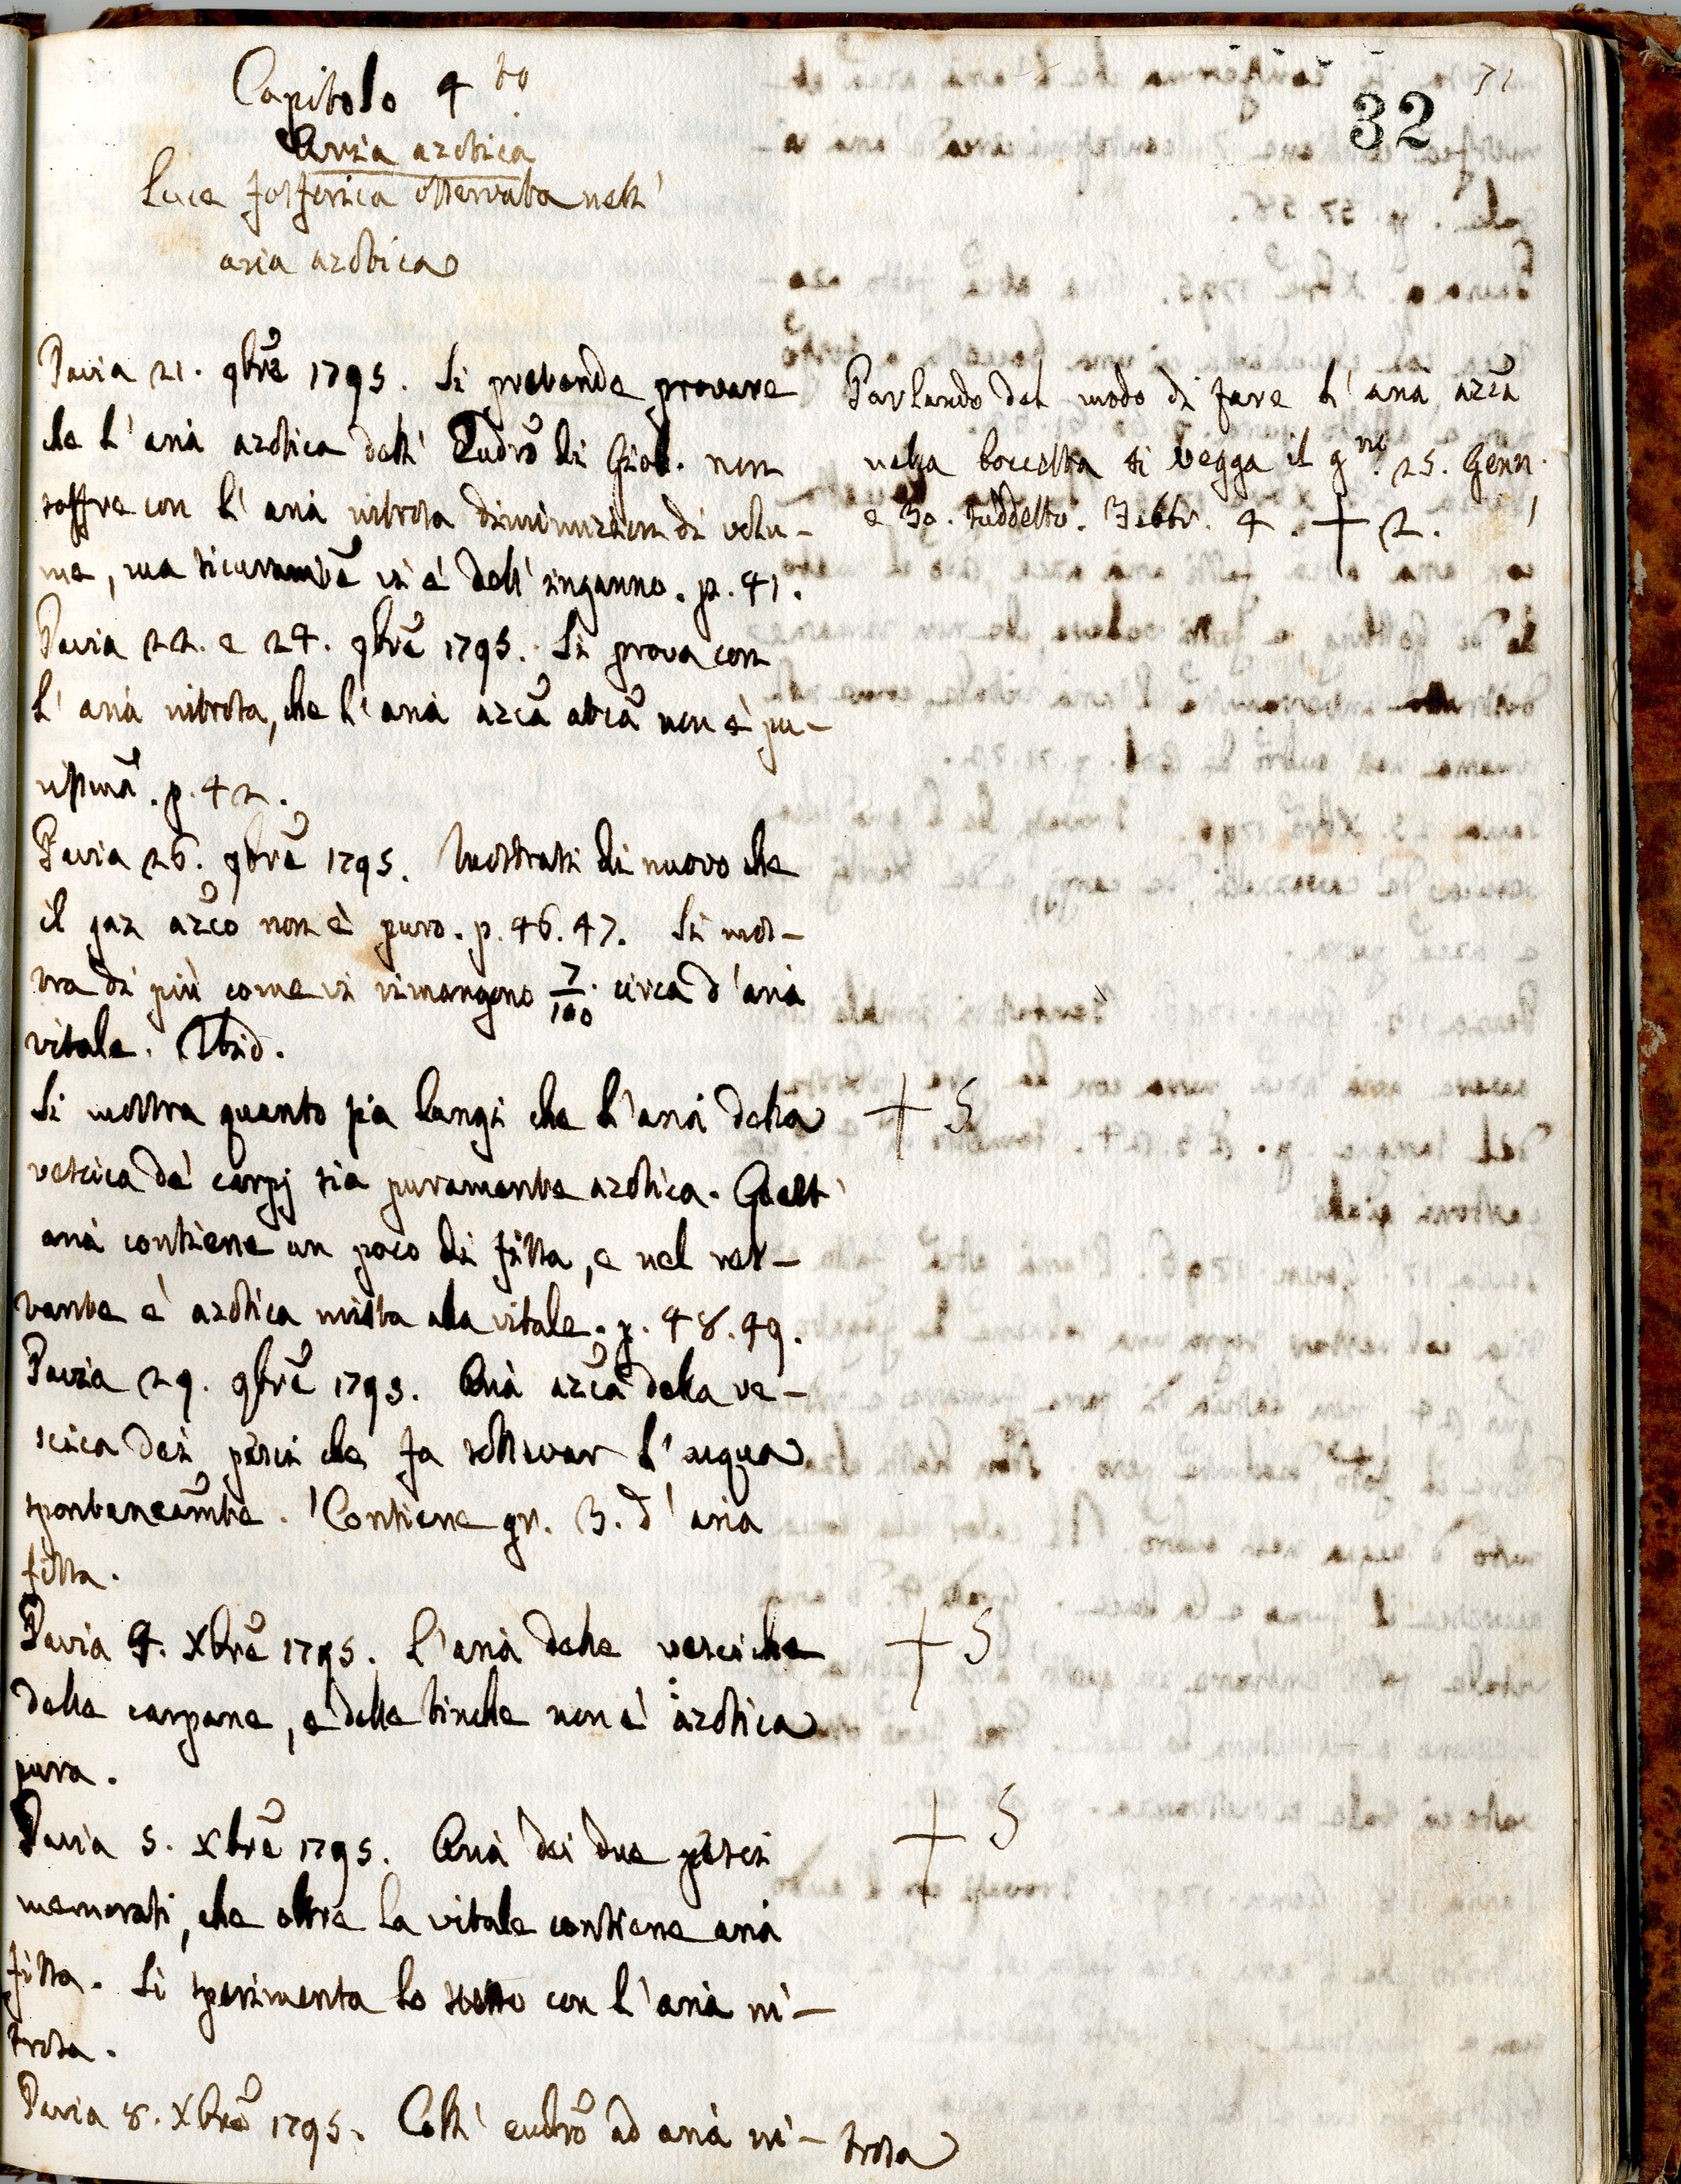 71
32
Capitolo 4to
Aria azotica
Luce fosforica osservata nell'
aria azotica
Pavia 21. 9bre 1795. Si pretende provare
che l'aria azotica dell' Eudro di Giob. non
soffre con l'aria nitrosa diminuzion di volu-
me, ma sicuramte vi è dell'inganno. p. 41.
Pavia 22. e 24. 9bre 1795. Si prova con
l'aria nitrosa, che l'aria azca atca non è pu-
rissima. p. 42.
Pavia 26. 9bre 1795. Mostrasi di nuovo che
il gaz azco non è puro. p. 46. 47. Si mos-
tra di più come vi rimangono 7/100 circa d'aria
vitale. Ibid.
Si mostra quanto sia lungi che l'aria della
vescica de' carpj sia puramente azotica. Quest'
aria contiene un poco di fissa, e nel res-
tante è azotica mista alla vitale. p. 48. 49.
Pavia 29. 9bre 1795. Aria azca della ve-
scica dei pesci che fa sollevar l'acqua
spontaneamte. Contiene gr. 3. d'aria
fissa.
Pavia 4. Xbre 1795. L'aria delle vesciche
delle carpane, e delle tinche non è azotica
pura.
Pavia 5. Xbre 1795. Aria dei due pesci
memorati, che oltre la vitale contiene aria
fissa. Si sperimenta lo stesso con l'aria ni-
trosa.
Pavia 8. Xbre 1795. Coll' eudro ad aria ni-trosa
Parlando del modo di fare l'aria azca
nella boccetta si vegga il gno 25. Genn.
e 30. suddetto. Febbr. 4. + 2.
+ 5
+ 5
+ 5